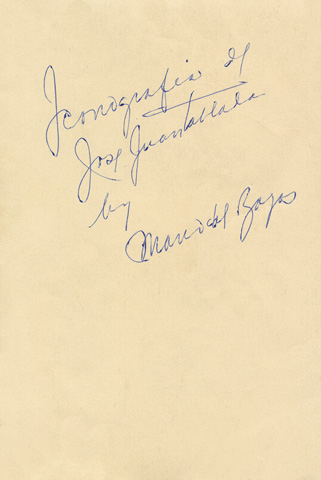 Iconografia of
José Juan Tablada
by
Mario de Bayas